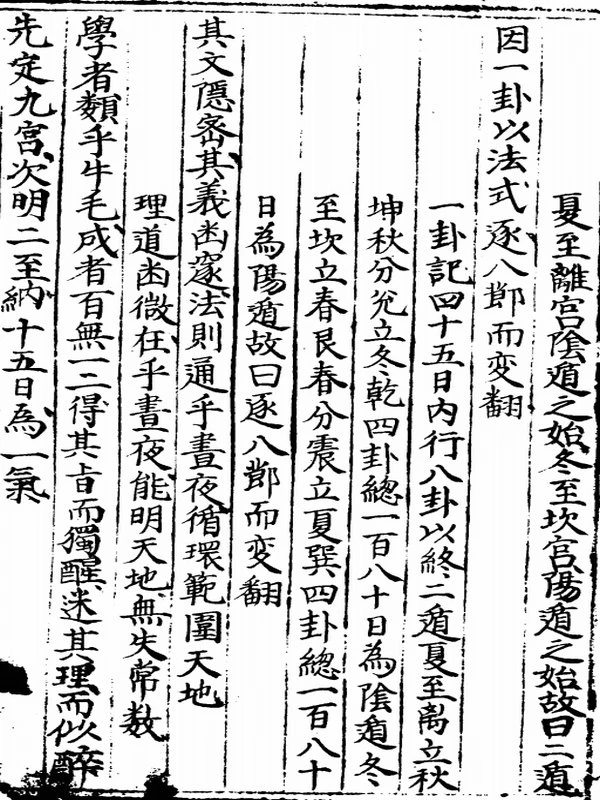 夏至離宮陰遁之始冬至坎宮陽遁之始故曰二遁
因一卦以法式逐八節而変翻
一卦記四十五日内行八卦以終二遁夏至离立秋
坤秋分兌立冬乾四卦總一百八十日為陰遁冬
至坎立春艮春分震立夏巽四卦總一百八十
日為陽遁故曰逐八節而变翻
其文隱宻其義幽窽法則通乎晝夜循環範圍天地
理道幽微在乎晝夜能明天地無失常数
學者纇乎牛毛成者百無一二得其旨而獨醒迷其理而似醉
先定九宮次明二至納十五日為一氣